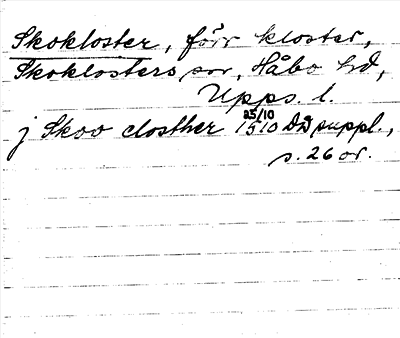 Skokloster, förr kloster,
Skoklosters sn, Håbo hd,
Upps. l.
j Skoo closther 25/10 1510 DD suppl.,
s. 26 or.